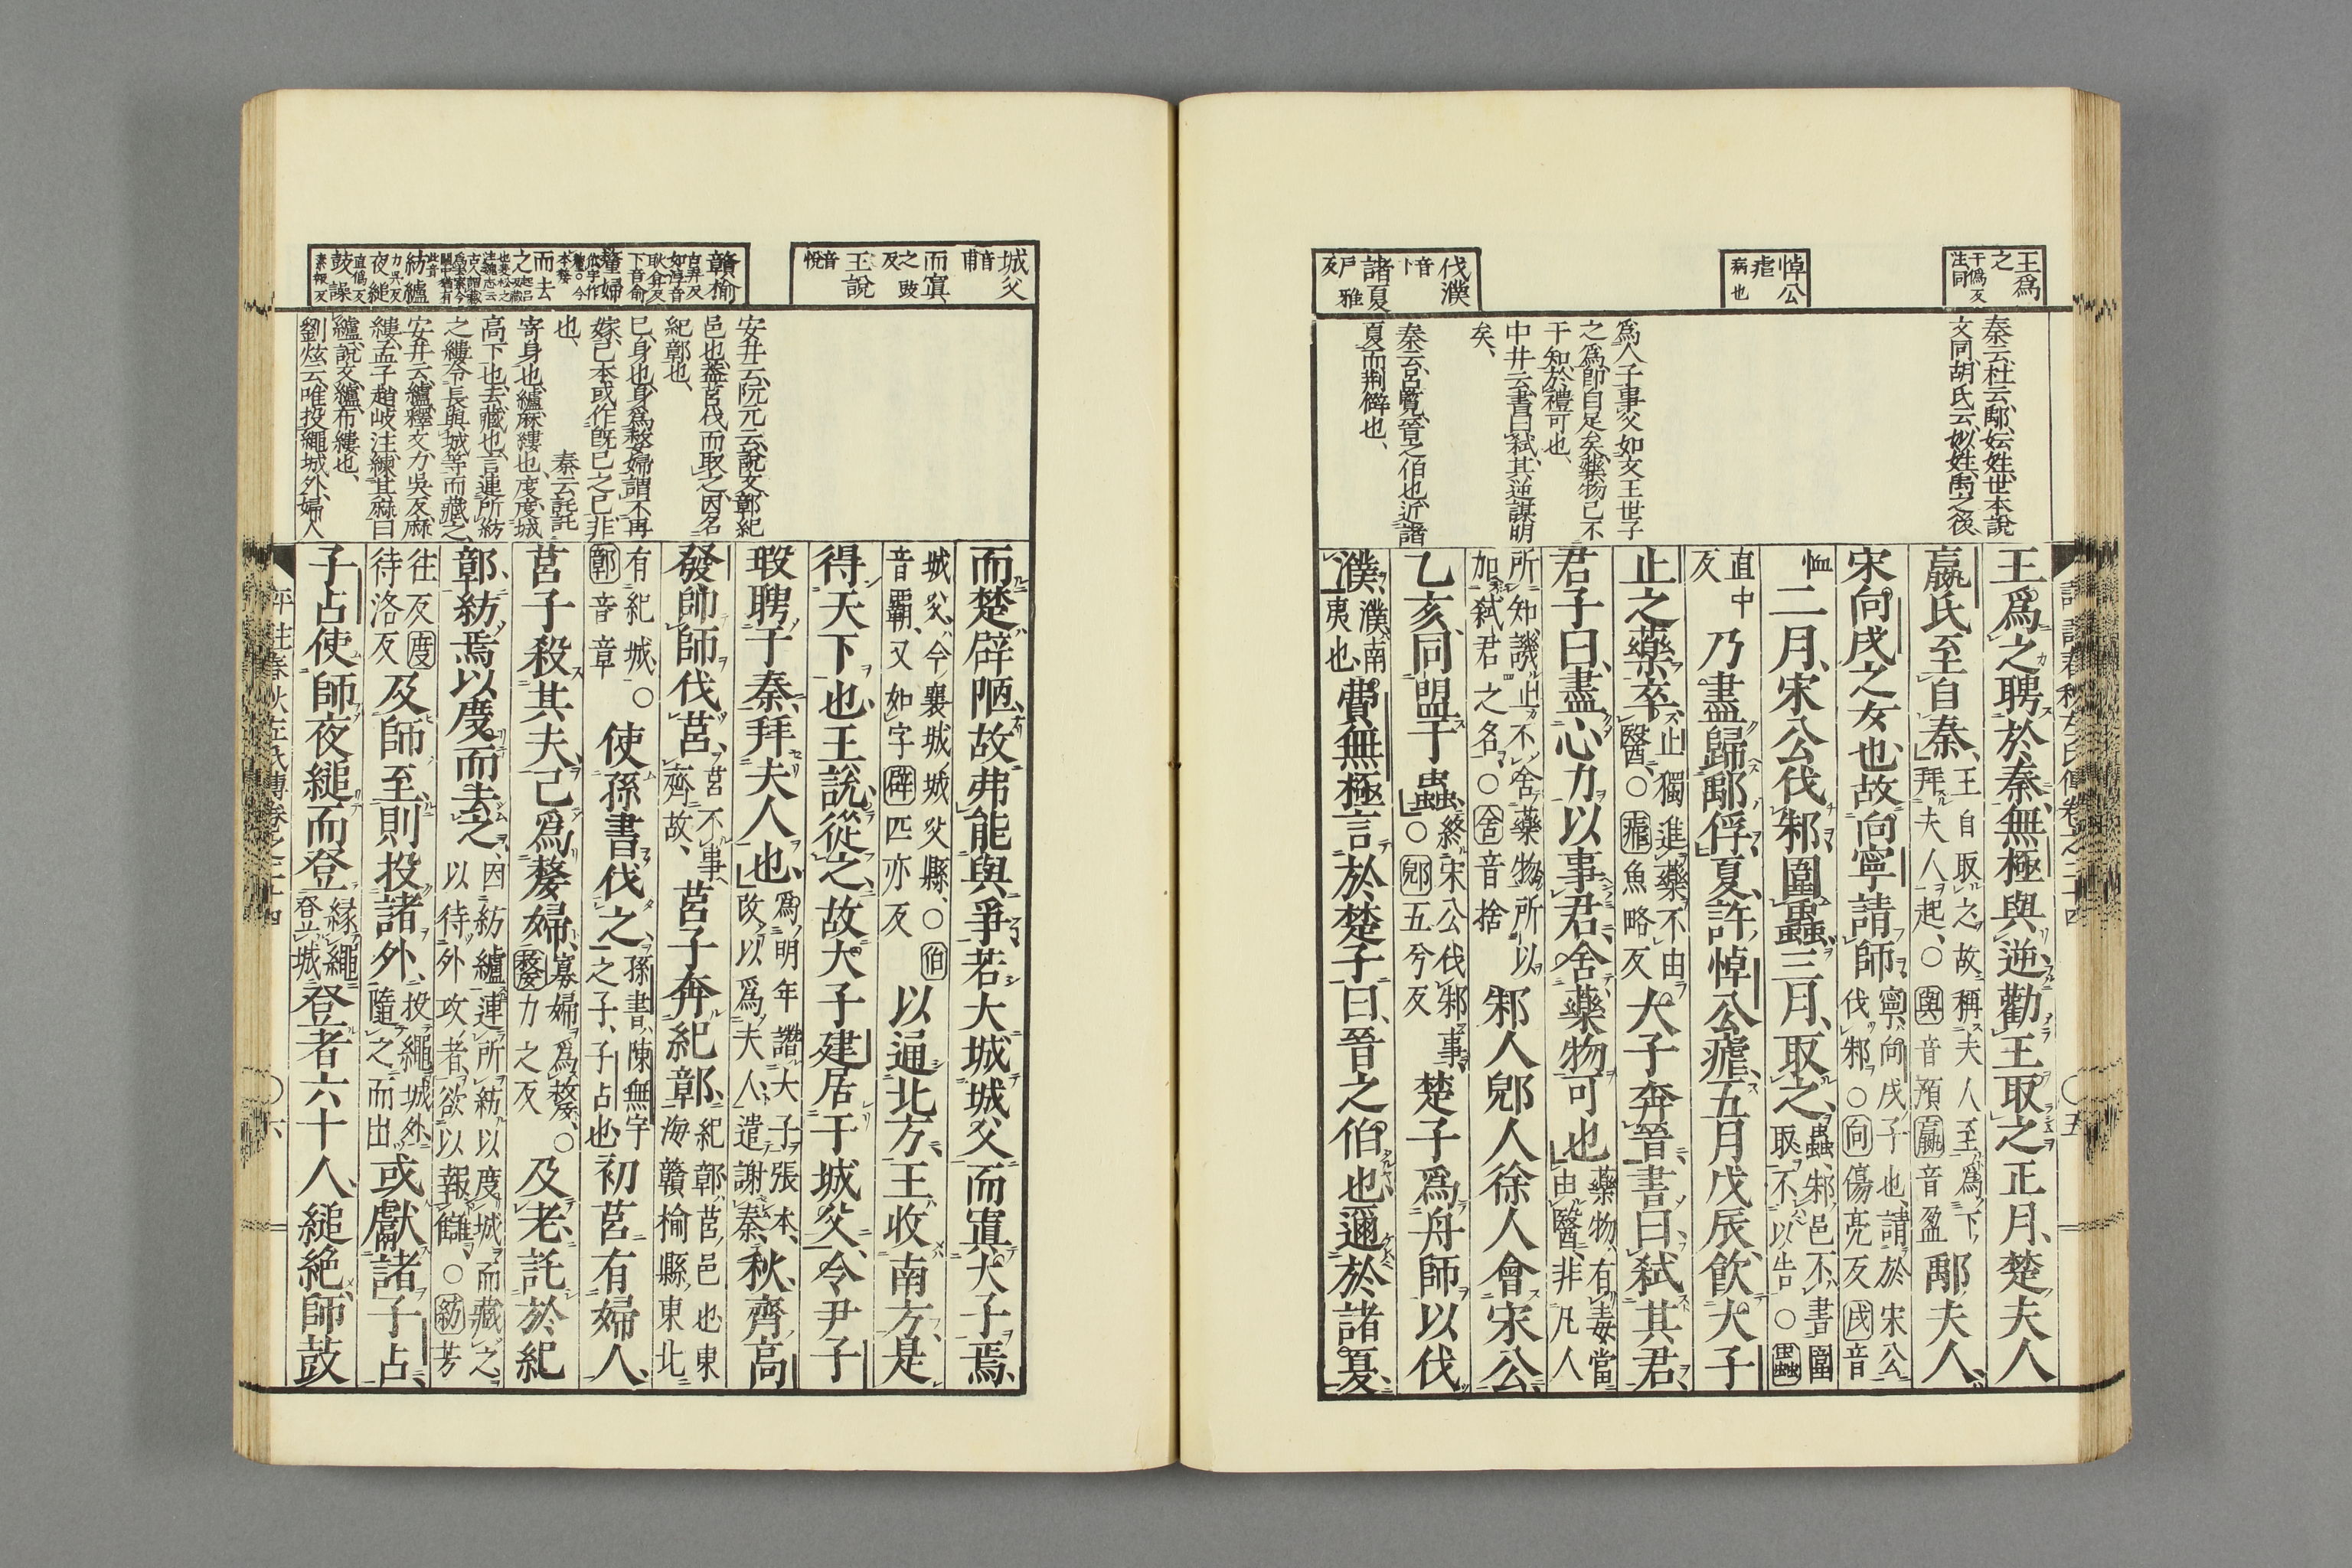 王爲
之
于僞反
注同
悼公
瘧
病也
伐濮
音卜
諸夏
戸雅反
秦云杜云鄅妘姓世本說
文同胡氏云姒姓禹之後
爲人子事父如文王世子
之爲卽自足矣藥物已不
干知於禮可也
中井云書曰弑其逆謀明
矣
秦云呂覽晉之伯也近諸
夏而荆僻也
王爲之聘於秦無極與逆勸王取之正月楚夫人
嬴氏至自秦王自取之故稱夫人至爲下拜夫人起○與音預嬴音盈鄅夫人
宋向戌之女也故向寧請師寧向戌子也請於宋公伐邾○向傷亮反戌音
恤二月宋公伐邾圍蟲三月取之蟲邾邑不書圍取不以告○蟲
直中反乃盡歸鄅俘夏許悼公瘧五月戊辰飲大子
止之藥卒止獨進藥不由醫○瘧魚略反大子奔晉書曰弑其君
君子曰盡心力以事君舍藥物可也藥物有毒當由醫非凡人
所知譏止不舍藥物所以加弑君之名○舍音捨邾人郳人徐人會宋公
乙亥同盟于蟲終宋公伐邾事○郳五兮反楚子爲舟師以伐
濮濮南夷也費無極言於楚子曰晉之伯也邇於諸夏
評註春秋左氏傳卷之二十四
○五
城父
音甫
而寘
之豉反
王說
音悅
贛榆
古弄反
如淳音
耿弇反
下音俞
嫠婦
依字作
釐○今
本嫠
而去
之起呂
反藏
也裴松之
注魏志云
古人謂藏
爲去案今
關中猶有
此音
紡纑
力吳反
夜縋
直僞反
鼓譟
素報反
安井云阮元云說文鄣紀
邑也蓋莒伐而取之因名
紀鄣也
已身也身爲嫠婦謂不再
嫁已本或作旣已之已非
也 秦云託
寄身也纑麻縷也度度城
高下也去藏也言連所紡
之縷令長與城等而藏之
安井云纑釋文力吳反麻
縷孟子趙岐注練其麻曰
纑說文纑布縷也
劉炫云唯投繩城外婦人
而楚辟陋故弗能與爭若大城城父而寘大子焉
城父今襄城城父縣○伯音霸又如字辟匹亦反以通北方王收南方是
得天下也王說從之故大子建居于城父令尹子
瑕聘于秦拜夫人也爲明年譖大子張本改以爲夫人遣謝秦秋齊高
發帥師伐莒莒不事齊故莒子奔紀鄣紀鄣莒邑也東海贛榆縣東北
有紀城○鄣音章使孫書伐之孫書陳無宇之子子占也初莒有婦人
莒子殺其夫已爲嫠婦寡婦爲嫠○嫠力之反及老託於紀
鄣紡焉以度而去之因紡纑連所紡以度城而藏之以待外攻者欲以報讎○紡芳
往反度待洛反及師至則投諸外投繩城外隨之而出或獻諸子占
子占使師夜縋而登緣繩登城登者六十人縋絕師鼓
評註春秋左氏傳卷之二十四
○六